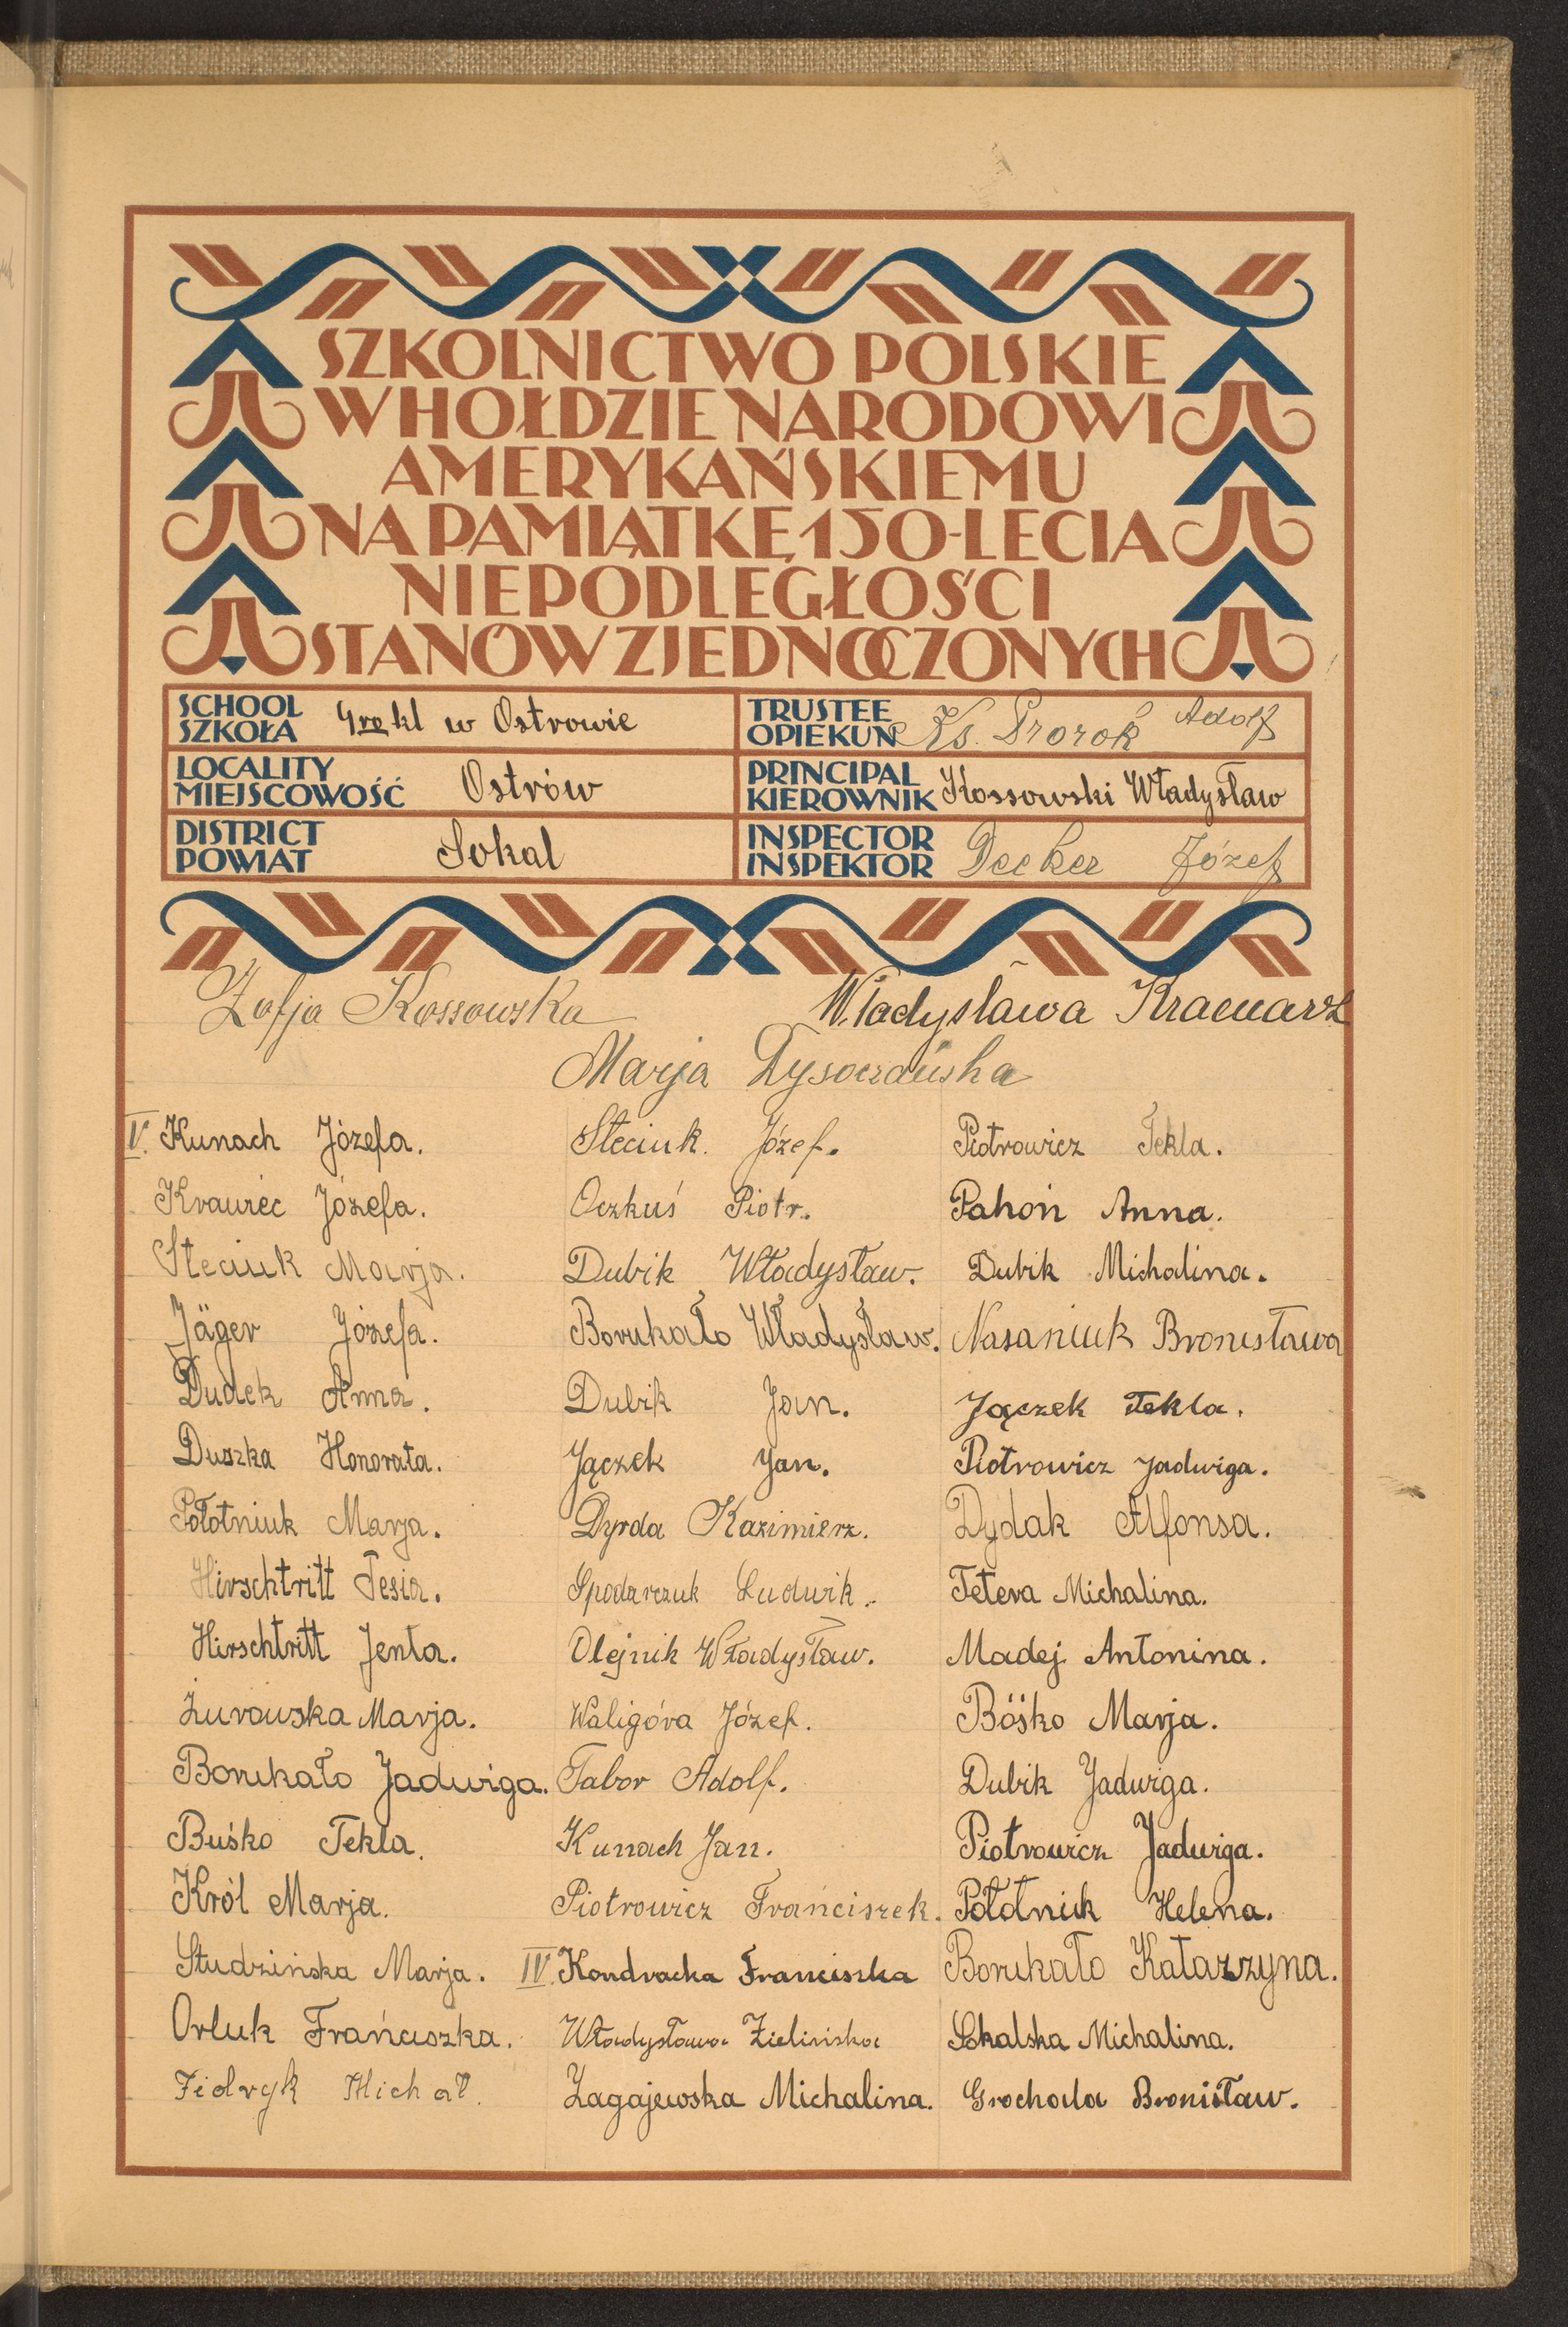 SZKOLNICTWO POLSKIE
W HOŁDZIE NARODOWI
AMERYKAŃSKIEMU
NA PAMIĄTKĘ 150-LECIA
NIEPODLEGŁOŚCI
STANÓW ZJEDNOCZONYCH
SCHOOL
SZKOŁA 4ro kl w Ostrowie
TRUSTEE
OPIEKUN Ks. Prorok Adolf
LOCALITY
MIEJSCOWOŚĆ Ostrów
PRINCIPAL
KIEROWNIK Kossowski Władysław
DISTRICT
POWIAT Sokal
INSPECTOR
INSPEKTOR Decker Józef
Zofja Kossowska
Władysława
Marja
V. Kunach Józefa.
Kraurec Józefa.
Steciuk Marja.
Jäger Józefa.
Dudek Anna.
Duszka Honorata.
Połotniuk Marja.
Hirschtritt Fesia.
Hirschtritt Jenta.
Żurowska Marja.
Borukało Jadwiga.
Buśko Tekla.
Król Marja.
Studzińska Marja.
Orluk Frańciszka.
Fidryk Michał.
Steciuk. Józef.
Oczkuś Piotr.
Dubik Władysław.
Borukało Władysław.
Dubik Jan.
Jączek Jan.
Dyrda Kazimierz.
Spodarczuk Ludwik.
Olejnik Władysław.
Waligóra Józef.
Tabor Adolf.
Kunach Jan.
Piotrowicz Frańciszek.
IV. Kondracka Franciszka
Władysława Zielińska
Zagajewska Michalina.
Piotrowicz Tekla.
Pahoń Anna.
Dubik Michalina.
Nasaniuk Bronisława
Jączek Tekla.
Piotrowicz Jadwiga.
Dydak Alfonsa.
Tetera Michalina.
Madej Antonina.
Böśko Marja.
Dubik Jadwiga.
Piotrowicz Jadwiga.
Połotniuk Helena.
Borukało Katarzyna.
Sokalska Michalina.
Grochala Bronisław.